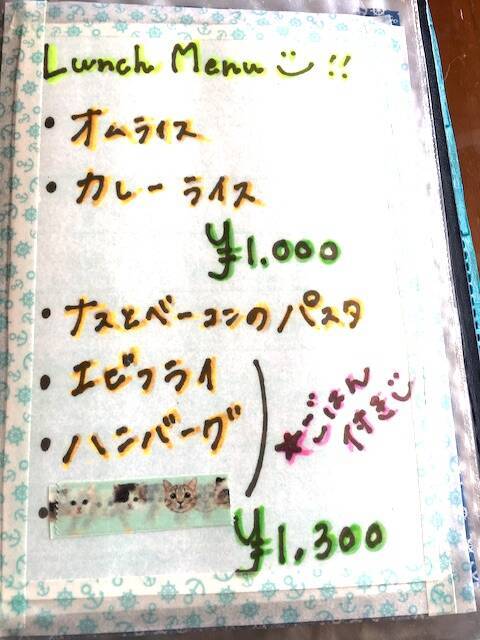 Lunch Menu !!
・オムライス
・カレーライス
¥1,000
・ナスとベーコンのパスタ
・エビフライ
・ハンバーグ
★ごはん
付き
¥1,300